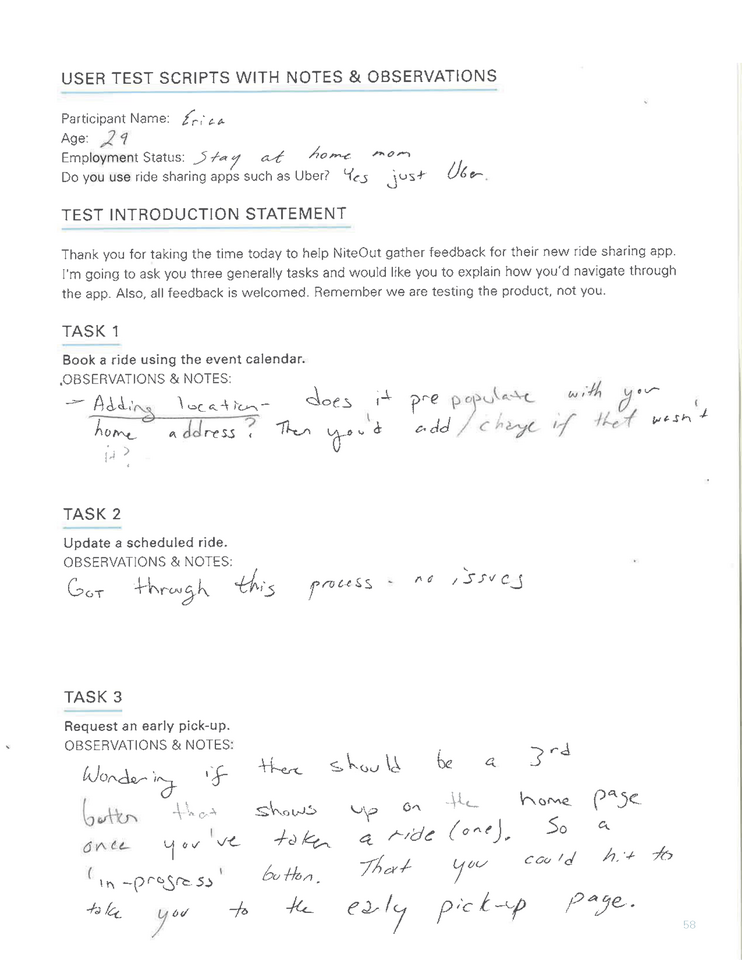 USER TEST SCRIPTS WITH NOTES & OBSERVATIONS
Participant Name: Erica
Age: 29
Employment Status: Stay at home mom
Do you use ride sharing apps such as Uber? Yes just Uber.
TEST INTRODUCTION STATEMENT
Thank you for taking the time today to help NiteOut gather feedback for their new ride sharing app.
I'm going to ask you three generally tasks and would like you to explain how you'd navigate through
the app. Also, all feedback is welcomed. Remember we are testing the product, not you.
TASK 1
Book a ride using the event calendar.
OBSERVATIONS & NOTES:
- Adding location - does it pre populate with your
home address? Then you'd add / change if that wasn't
it?
TASK 2
Update a scheduled ride.
OBSERVATIONS & NOTES:
Got through this process - no issues
TASK 3
Request an early pick-up.
OBSERVATIONS & NOTES:
Wondering if there should be a 3rd
button that shows up on the home page
once you've taken a ride (one). So a
'in-progress' button. That you could hit to
take you to the early pick-up page.
58